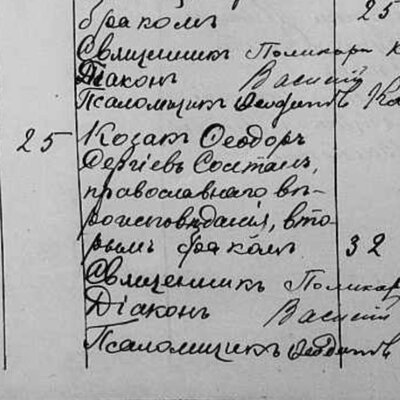 бракомъ 25
Священникъ Поликарп К
Діаконъ Василій
Псаломщикъ Феодотовъ
25 Козакъ Феодоръ
Сергіевъ Солтанъ,
православнаго вѣ-
роисповѣданія, вто-
рымъ бракомъ 32
Священникъ Поликар
Діаконъ Василій
Псаломщикъ Феодотовъ